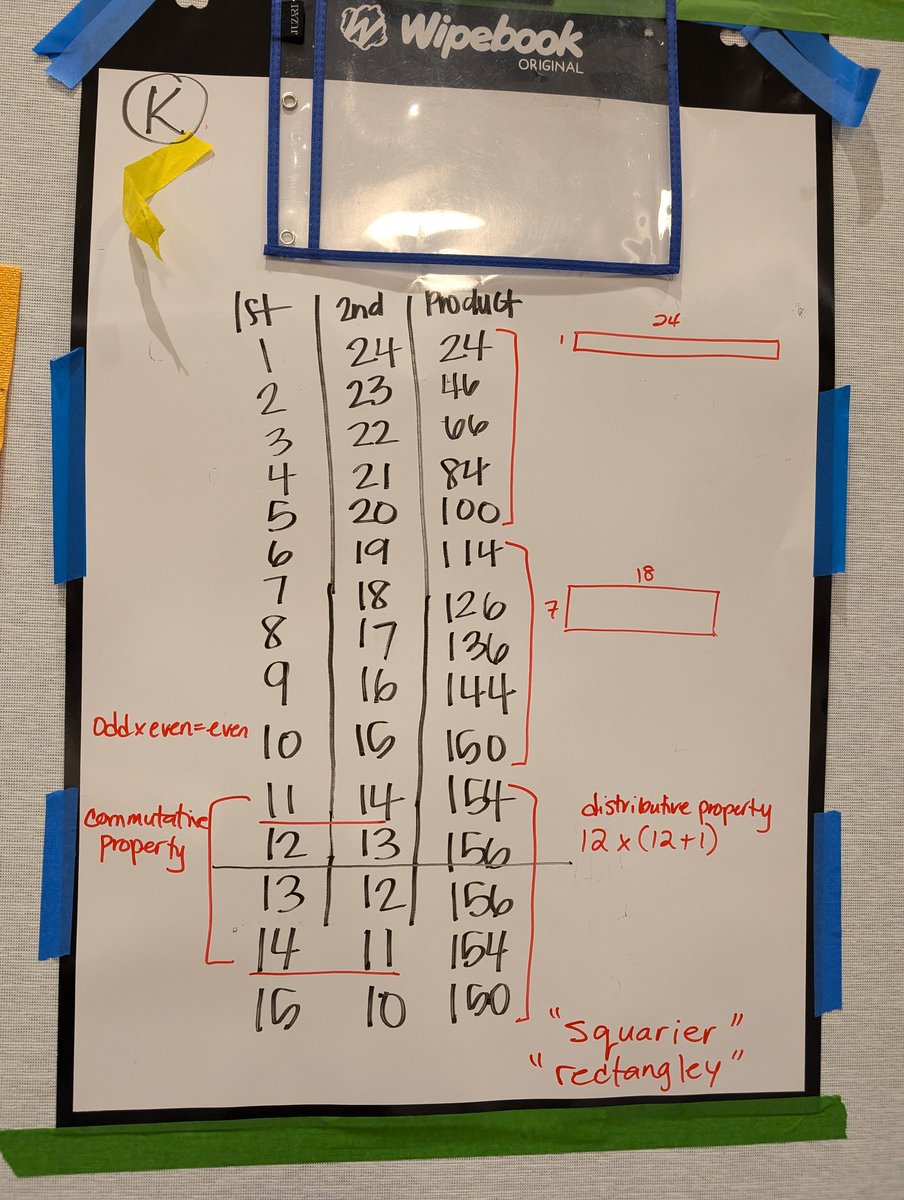 JUZARI
Wipebook
ORIGINAL
K
1st 2nd Product
1 24 24
2 23 46
3 22 66
4 21 84
5 20 100
6 19 114
7 18 126
8 17 136
9 16 144
10 15 150
11 14 154
12 13 156
13 12 156
14 11 154
15 10 150
24
1
18
7
Odd x even = even
commutative
property
distributive property
12 x (12+1)
"Squarier"
"rectangley"